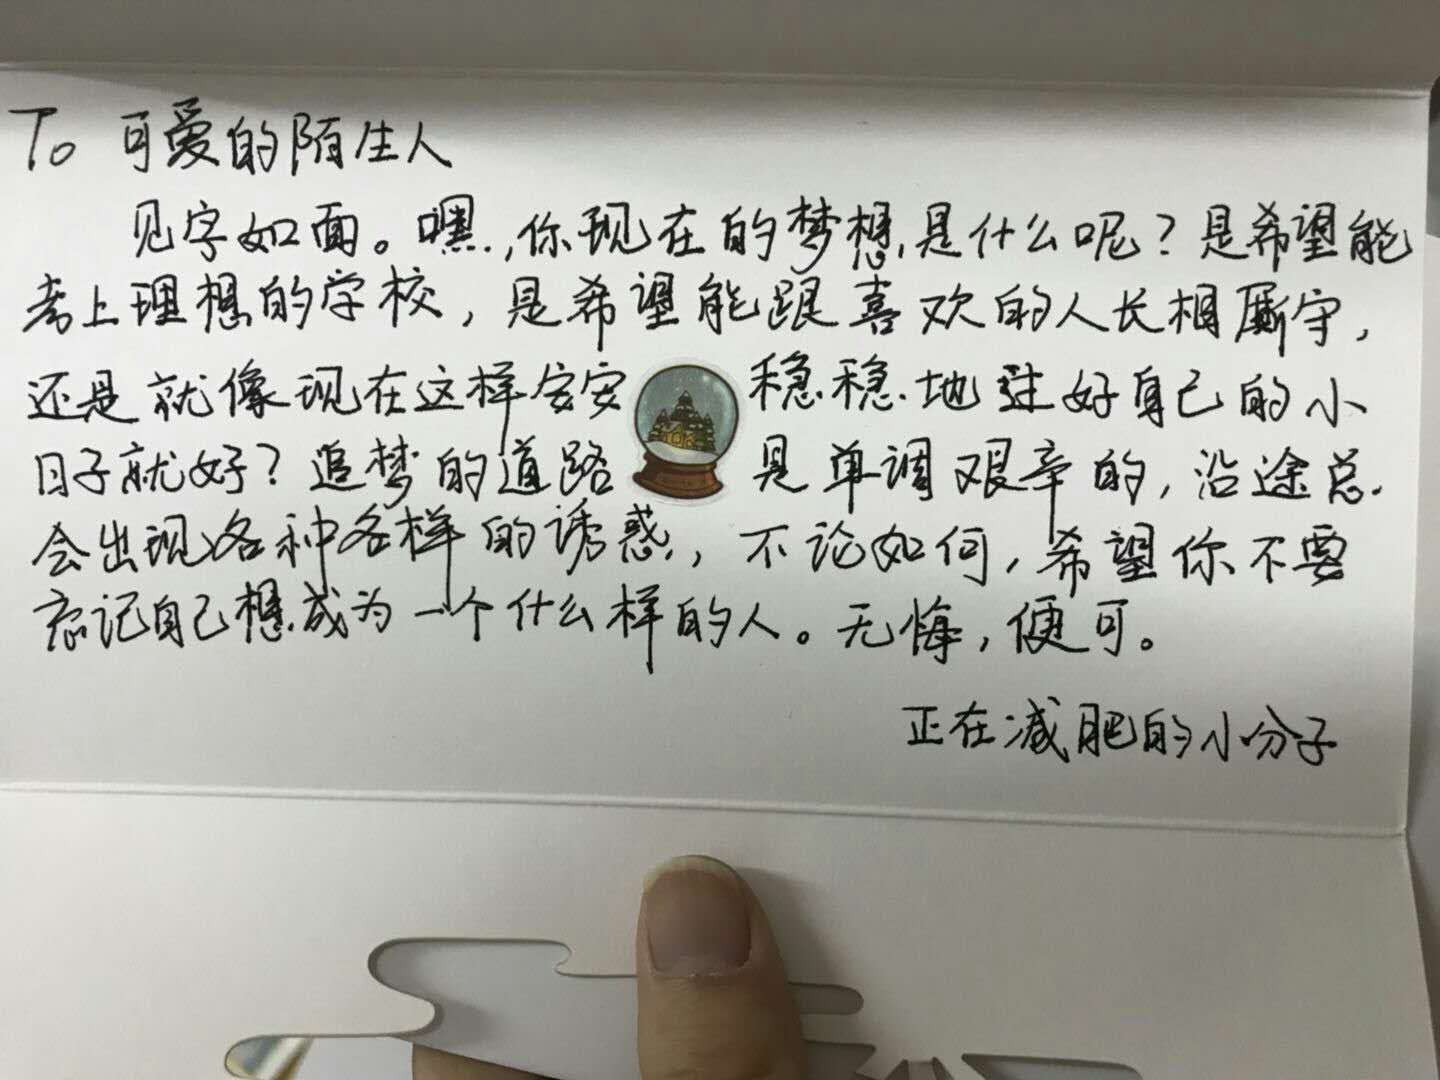 To 可爱的陌生人
见字如面。嘿,你现在的梦想,是什么呢？是希望能
考上理想的学校，是希望能跟喜欢的人长相厮守，
还是就像现在这样安安稳稳地过好自己的小
日子就好？追梦的道路是单调艰辛的，沿途总
会出现各种各样的诱惑，不论如何，希望你不要
忘记自己想成为一个什么样的人。无悔，便可。
正在减肥的小分子